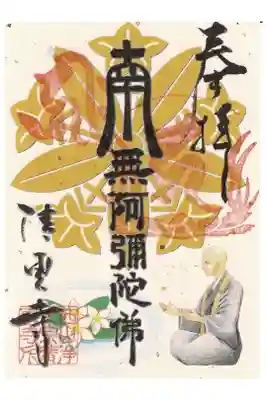 奉拝
南無阿彌陀佛
清里寺